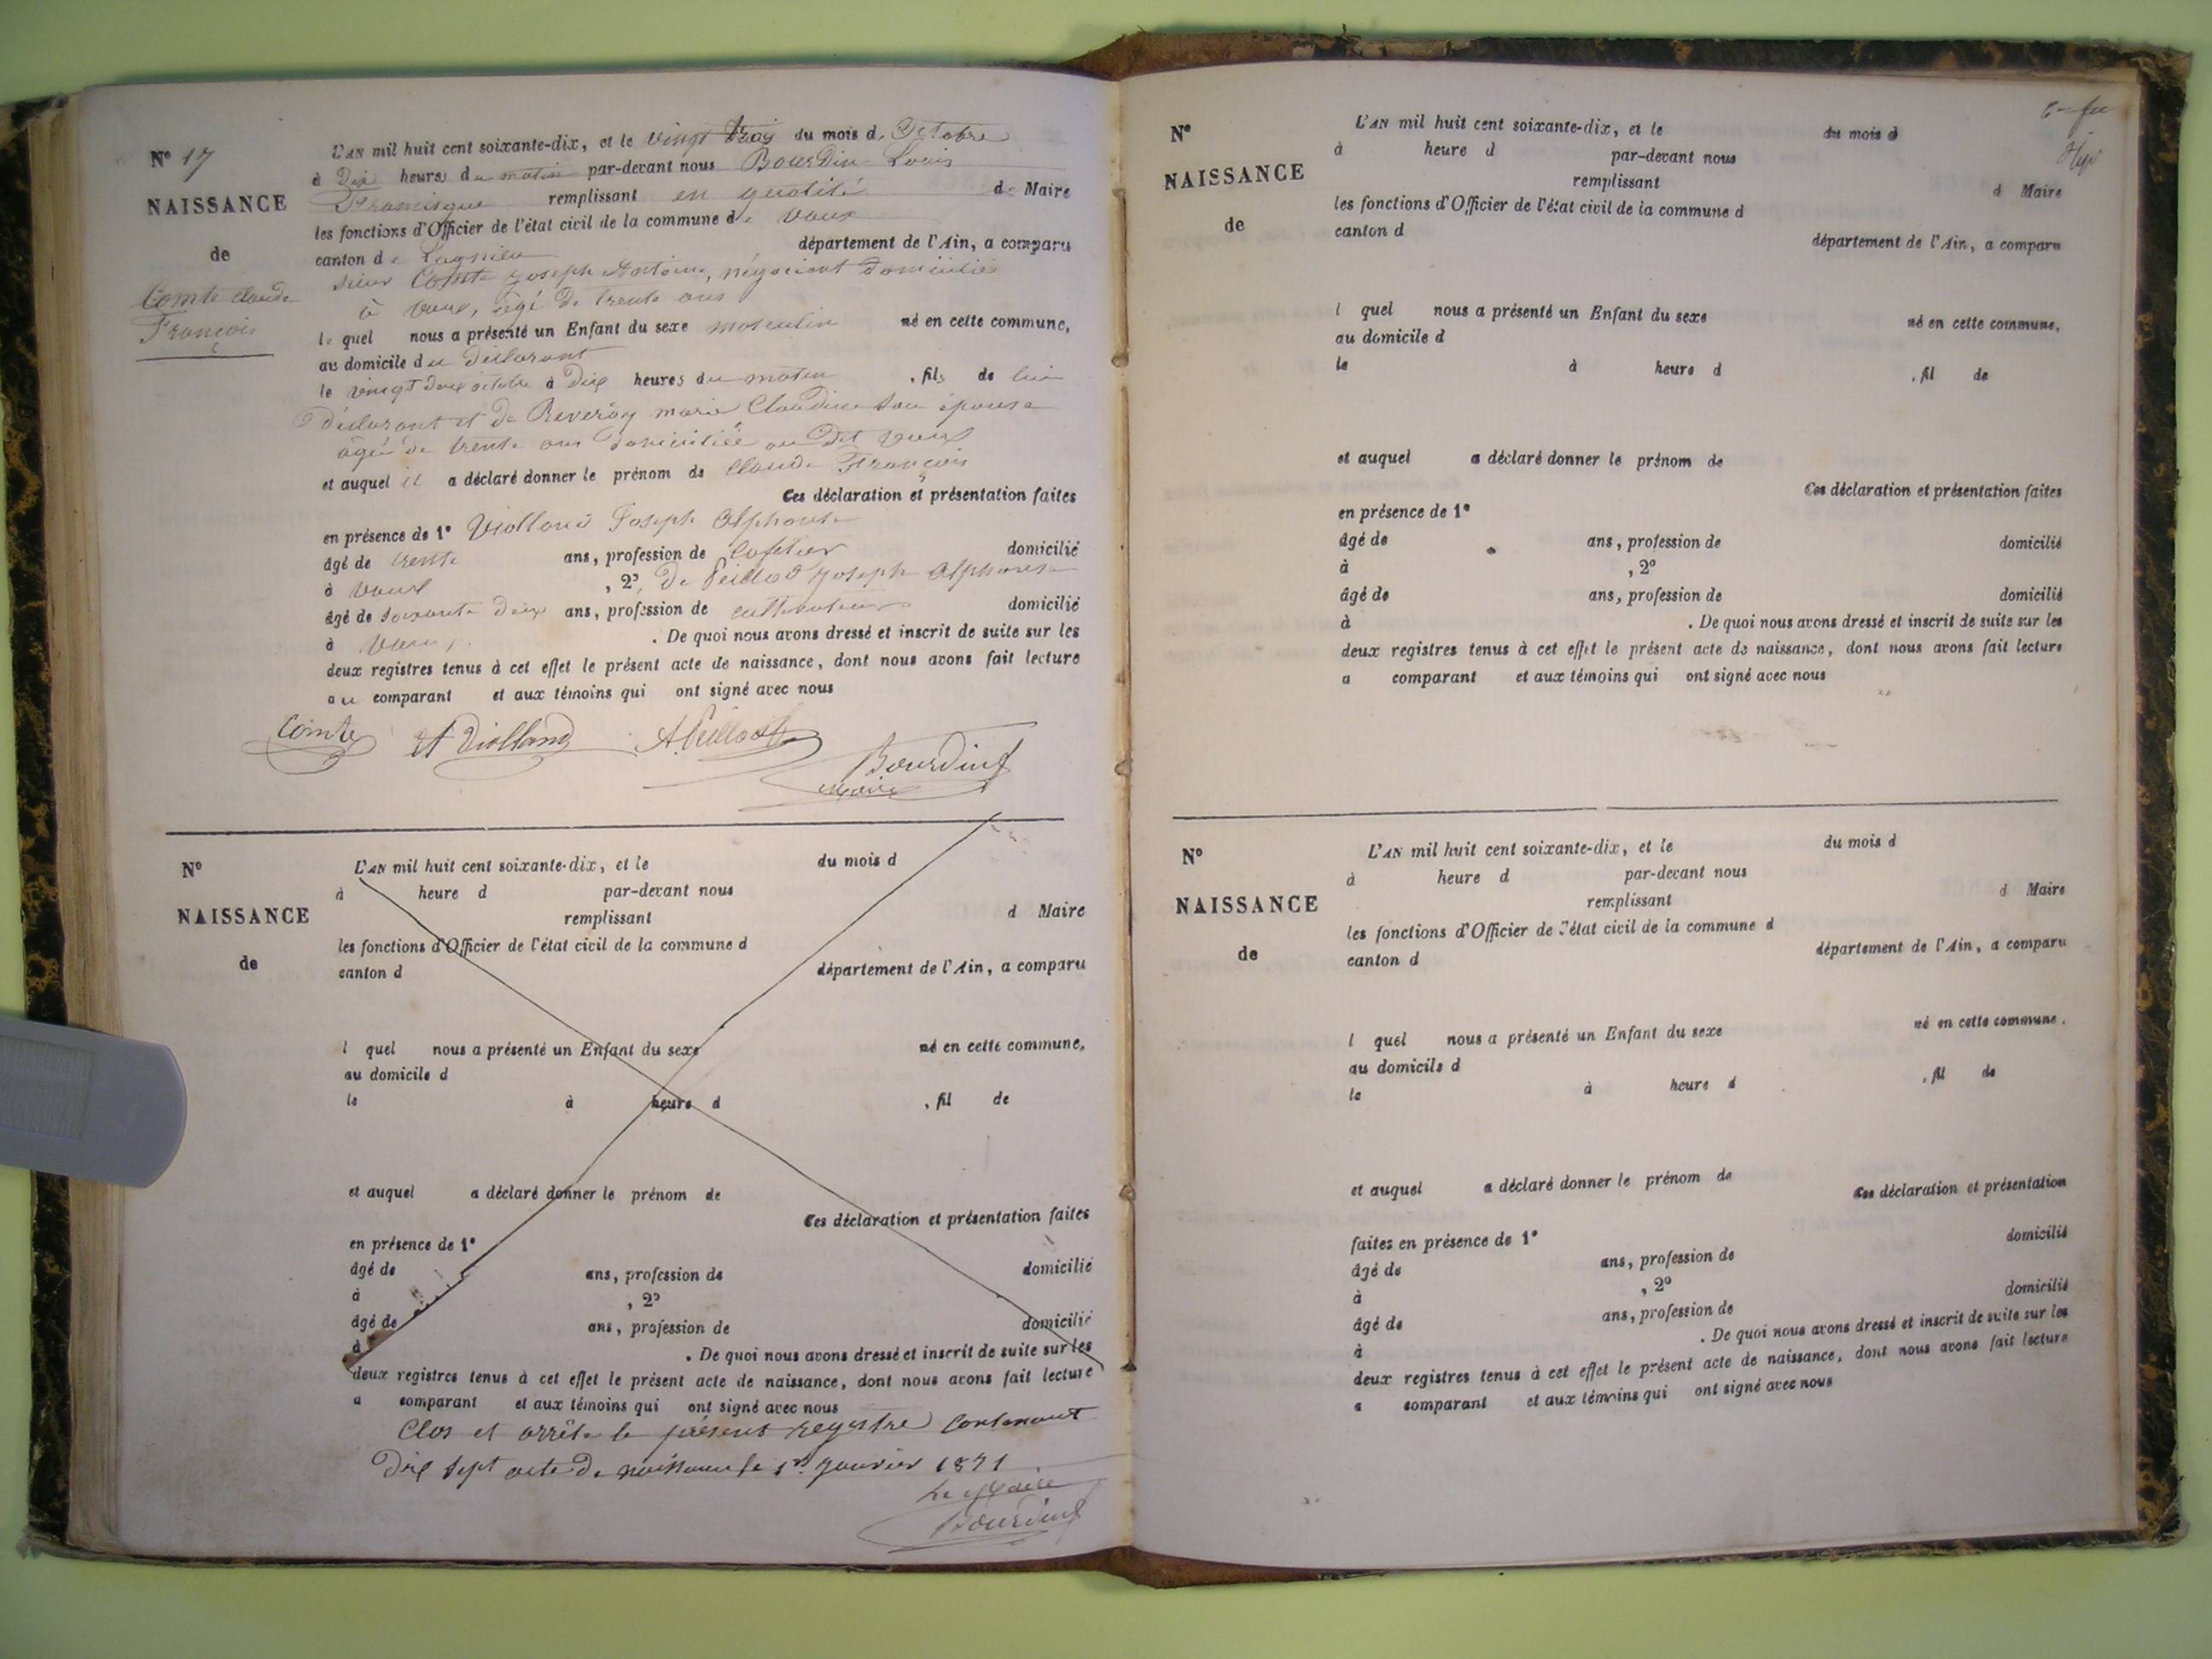 N° 17
NAISSANCE
de
Comte Claude
François
L'AN mil huit cent soixante-dix, et le vingt trois du mois d'Octobre
à Dix heures du matin par-devant nous Bourdin Louis
Francisque remplissant en qualité de Maire
les fonctions d'Officier de l'état civil de la commune de Vaux
canton de Lagnieu département de l'Ain, a comparu
sieur Comte Joseph Antoine, négociant domicilié
à Vaux, âgé de trente ans
lequel nous a présenté un Enfant du sexe masculin né en cette commune,
au domicile du déclarant
le vingt deux octobre à Dix heures du matin, fils de lui
Déclarant et de Reveroy marie Claudine son épouse
âgée de trente ans domiciliée au dit Vaux
et auquel il a déclaré donner le prénom de Claude François
Ces déclaration et présentation faites
en présence de 1° Violland Joseph Alphonse
âgé de trente ans, profession de cafetier domicilié
à Vaux, 2°, De Peilled Joseph Alphonse
âgé de soixante deux ans, profession de cultivateur domicilié
à Vaux, . De quoi nous avons dressé et inscrit de suite sur les
deux registres tenus à cet effet le présent acte de naissance, dont nous avons fait lecture
au comparant et aux témoins qui ont signé avec nous
Comte A Violland Bourdin
Maire
N°
NAISSANCE
de
L'AN mil huit cent soixante-dix, et le du mois d
à heure d par-devant nous
remplissant d Maire
les fonctions d'Officier de l'état civil de la commune d
canton d département de l'Ain, a comparu
l quel nous a présenté un Enfant du sexe né en cette commune,
au domicile d
le à heure d , fil de
et auquel a déclaré donner le prénom de
Ces déclaration et présentation faites
en présence de 1°
âgé de ans, profession de domicilié
à , 2°
âgé de ans, profession de domicilié
à . De quoi nous avons dressé et inscrit de suite sur les
deux registres tenus à cet effet le présent acte de naissance, dont nous avons fait lecture
a comparant et aux témoins qui ont signé avec nous
Clos et arrêté le présent registre contenant
Dix sept acte De naissance le 1er Janvier 1871
Le Maire
Bourdin
N°
NAISSANCE
de
L'AN mil huit cent soixante-dix, et le du mois d
à heure d par-devant nous
remplissant d Maire
les fonctions d'Officier de l'état civil de la commune d
canton d département de l'Ain, a comparu
l quel nous a présenté un Enfant du sexe né en cette commune,
au domicile d
le à heure d , fil de
et auquel a déclaré donner le prénom de
Ces déclaration et présentation faites
en présence de 1°
âgé de ans, profession de domicilié
à , 2°
âgé de ans, profession de domicilié
à . De quoi nous avons dressé et inscrit de suite sur les
deux registres tenus à cet effet le présent acte de naissance, dont nous avons fait lecture
a comparant et aux témoins qui ont signé avec nous
N°
NAISSANCE
de
L'AN mil huit cent soixante-dix, et le du mois d
à heure d par-devant nous
remplissant d Maire
les fonctions d'Officier de l'état civil de la commune d
canton d département de l'Ain, a comparu
l quel nous a présenté un Enfant du sexe né en cette commune,
au domicile d
le à heure d , fil de
et auquel a déclaré donner le prénom de
Ces déclaration et présentation
faites en présence de 1°
âgé de ans, profession de domicilié
à , 2°
âgé de ans, profession de domicilié
à . De quoi nous avons dressé et inscrit de suite sur les
deux registres tenus à cet effet le présent acte de naissance, dont nous avons fait lecture
a comparant et aux témoins qui ont signé avec nous